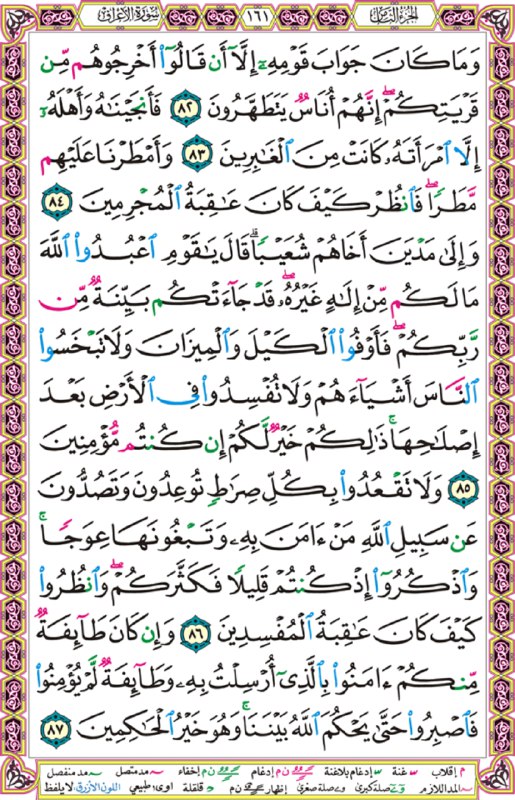 الجزء الثامن ١٦١ سورة الأعراف
وَمَا كَانَ جَوَابَ قَوْمِهِۦٓ إِلَّآ أَن قَالُوٓا۟ أَخْرِجُوهُم مِّن
قَرْيَتِكُمْ ۖ إِنَّهُمْ أُنَاسٌ يَتَطَهَّرُونَ ٨٢ فَأَنجَيْنَٰهُ وَأَهْلَهُۥٓ
إِلَّا ٱمْرَأَتَهُۥ كَانَتْ مِنَ ٱلْغَٰبِرِينَ ٨٣ وَأَمْطَرْنَا عَلَيْهِم
مَّطَرًا ۖ فَٱنظُرْ كَيْفَ كَانَ عَٰقِبَةُ ٱلْمُجْرِمِينَ ٨٤
وَإِلَىٰ مَدْيَنَ أَخَاهُمْ شُعَيْبًا ۗ قَالَ يَٰقَوْمِ ٱعْبُدُوا۟ ٱللَّهَ
مَا لَكُم مِّنْ إِلَٰهٍ غَيْرُهُۥ ۖ قَدْ جَآءَتْكُم بَيِّنَةٌ مِّن
رَّبِّكُمْ ۖ فَأَوْفُوا۟ ٱلْكَيْلَ وَٱلْمِيزَانَ وَلَا تَبْخَسُوا۟
ٱلنَّاسَ أَشْيَآءَهُمْ وَلَا تُفْسِدُوا۟ فِى ٱلْأَرْضِ بَعْدَ
إِصْلَٰحِهَا ۚ ذَٰلِكُمْ خَيْرٌ لَّكُمْ إِن كُنتُم مُّؤْمِنِينَ
٨٥ وَلَا تَقْعُدُوا۟ بِكُلِّ صِرَٰطٍ تُوعِدُونَ وَتَصُدُّونَ
عَن سَبِيلِ ٱللَّهِ مَنْ ءَامَنَ بِهِۦ وَتَبْغُونَهَا عِوَجًا ۚ
وَٱذْكُرُوٓا۟ إِذْ كُنتُمْ قَلِيلًا فَكَثَّرَكُمْ ۖ وَٱنظُرُوا۟
كَيْفَ كَانَ عَٰقِبَةُ ٱلْمُفْسِدِينَ ٨٦ وَإِن كَانَ طَآئِفَةٌ
مِّنكُمْ ءَامَنُوا۟ بِٱلَّذِىٓ أُرْسِلْتُ بِهِۦ وَطَآئِفَةٌ لَّمْ يُؤْمِنُوا۟
فَٱصْبِرُوا۟ حَتَّىٰ يَحْكُمَ ٱللَّهُ بَيْنَنَا ۚ وَهُوَ خَيْرُ ٱلْحَٰكِمِينَ ٨٧
م إقلاب س غنة س إدغام بلاغنة ن م إدغام ن م إخفاء مد متصل مد منفصل
المد اللازم صلة كبرى صلة صغرى إظهار ن م قلقلة اوى: طبيعي اللون الأزرق: لايلفظ